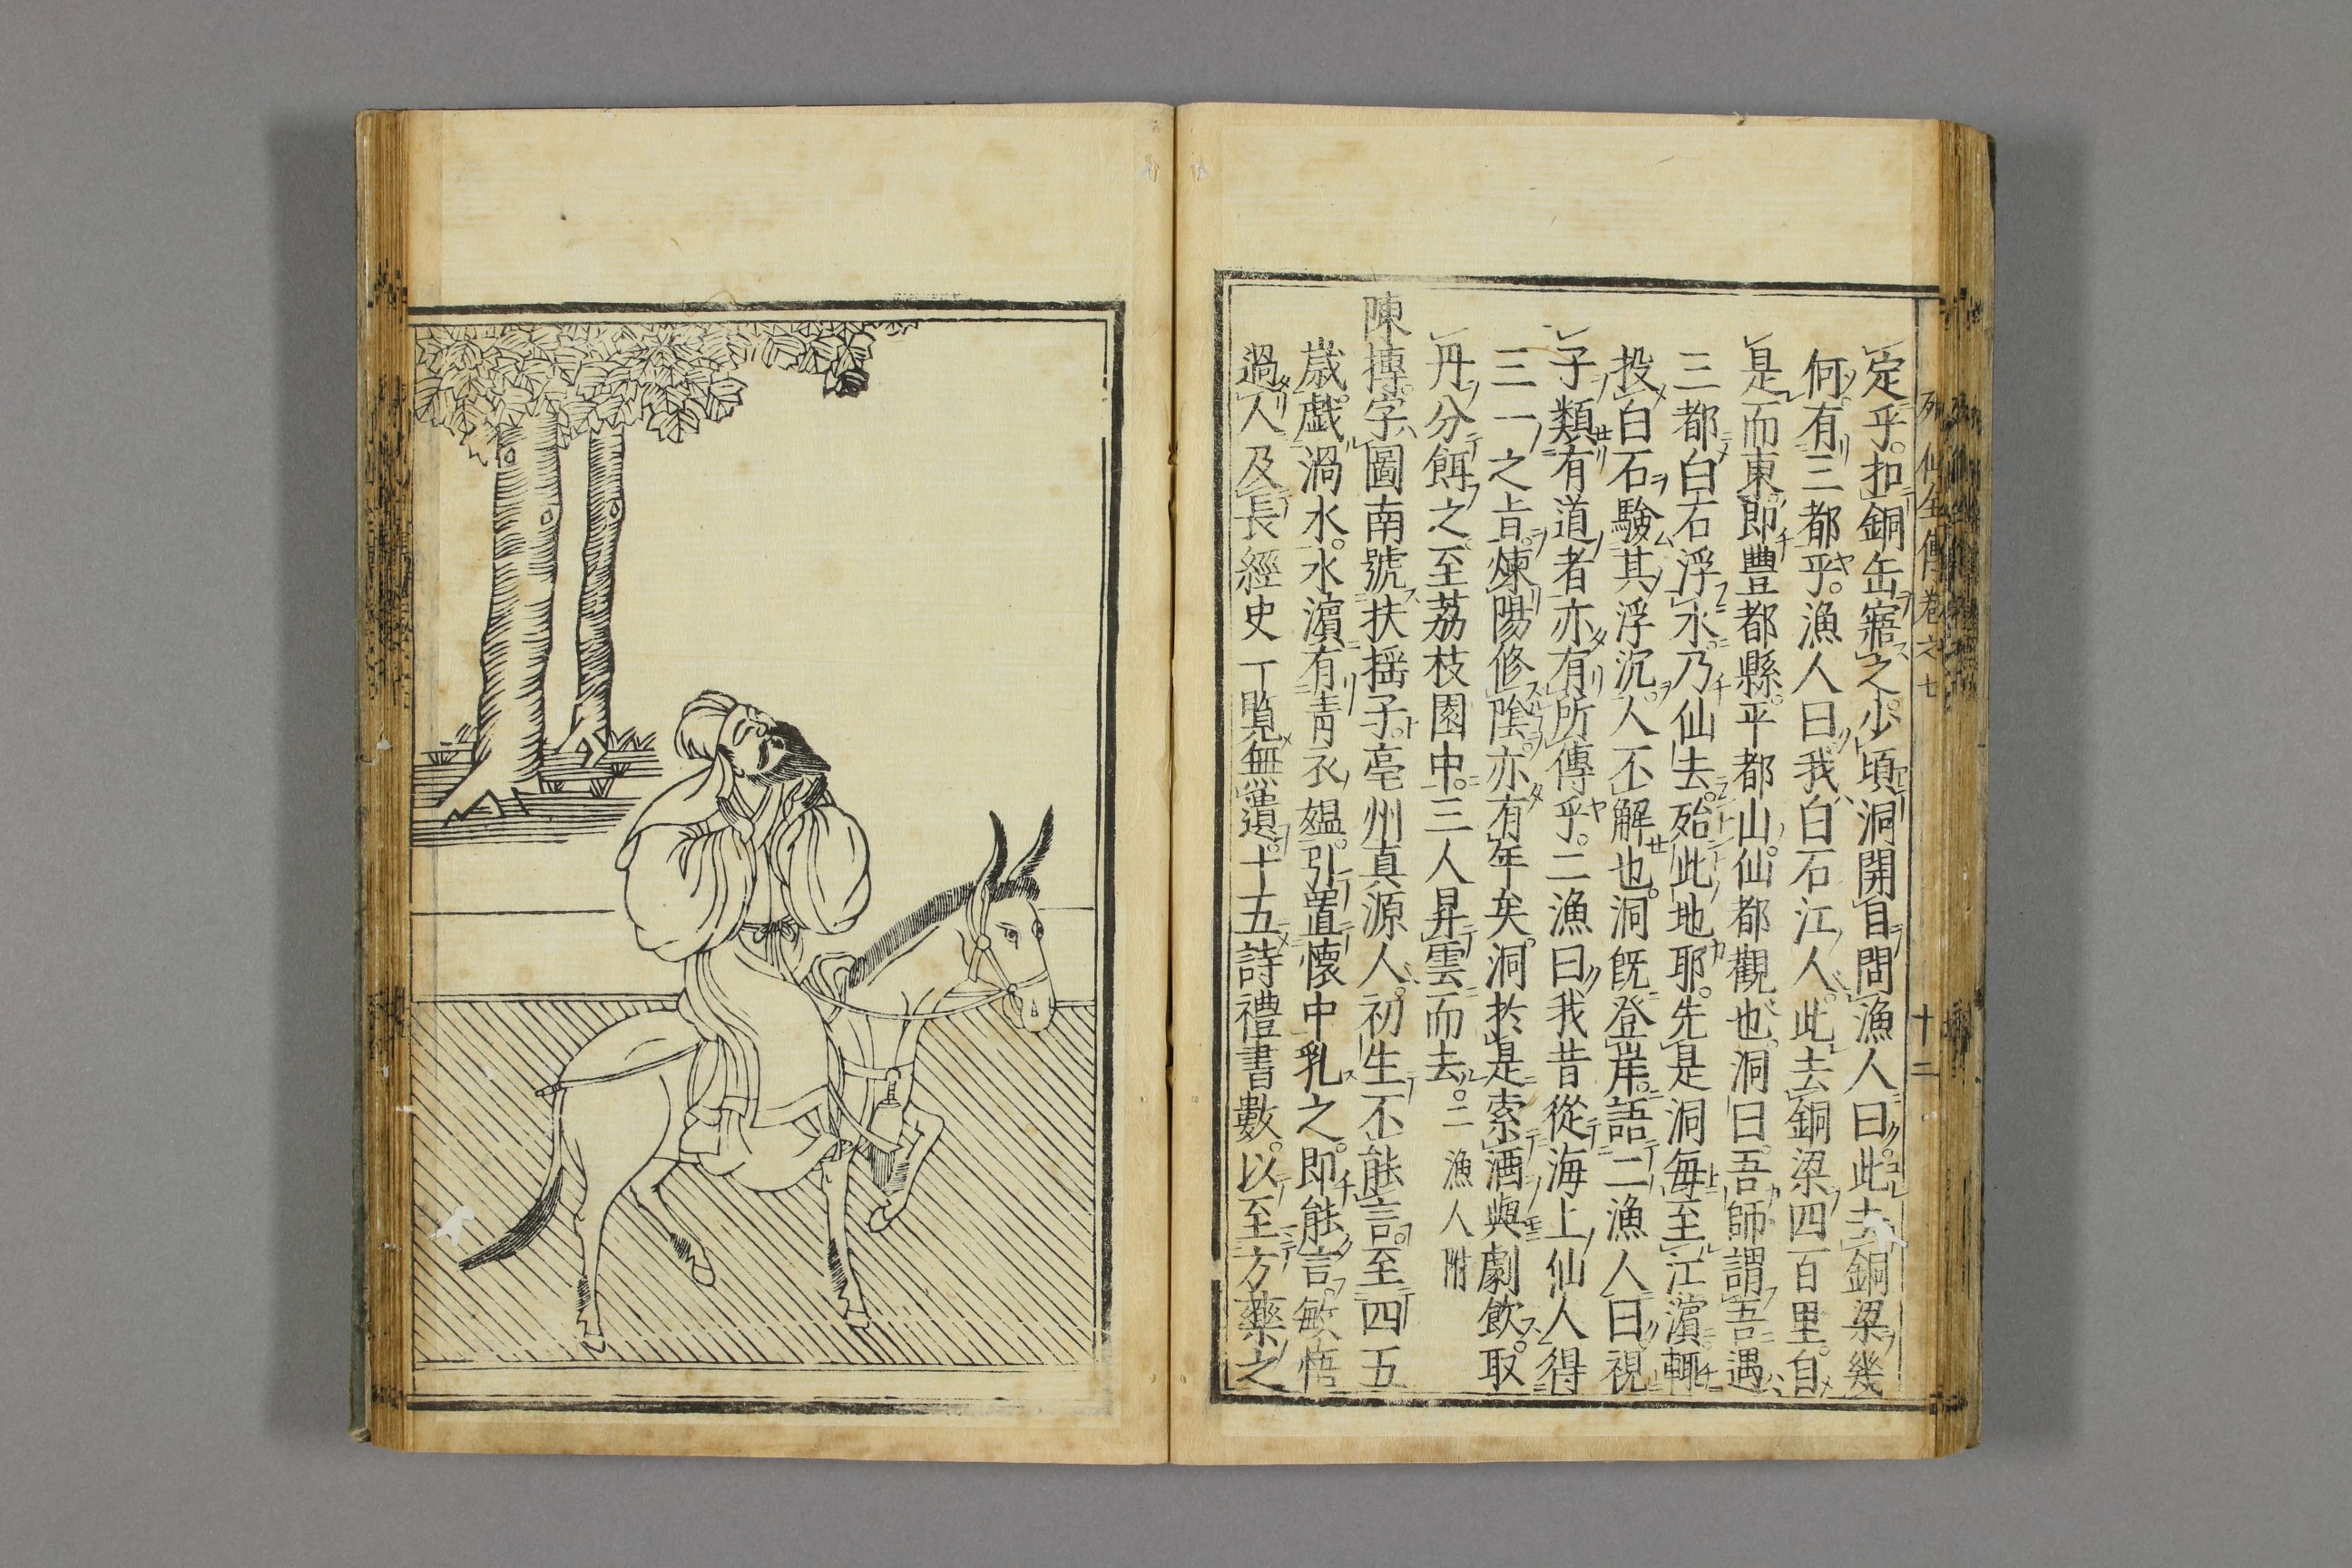 列仙全傳卷之七 十二
定乎。扣銅缶寤之。少頃洞開目問漁人曰。此去銅梁幾
何。有三都乎。漁人曰。我白石江人。此去銅梁四百里。自
是而東。即豐都縣。平都山。仙都觀也。洞曰。吾師謂吾遇
三都白石浮水。乃仙去。殆此地耶。先是洞每至江濵。輙
投白石驗其浮沉。人不解也。洞旣登岸。語二漁人曰。視
子類有道者亦有所傳乎。二漁曰我昔從海上仙人得
三一之㫖。煉陽修陰。亦有年矣。洞於是索酒與劇飲。取
丹分餌之。至荔枝園中。三人昇雲而去。二漁人附
陳摶。字圖南號扶摇子。亳州真源人。初生不能言。至四五
歳。戯渦水。水濵有青衣媼。引置懷中乳之。即能言。敏悟
過人及長經史一覧無遺。十五詩禮書數。以至方藥之